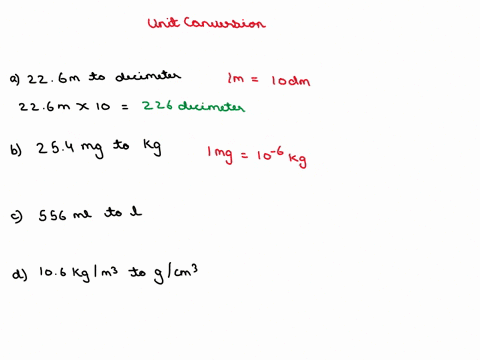 Unit Conversion
a) 22.6m to decimeter 1m = 10dm
22.6m × 10 = 226 decimeter
b) 25.4 mg to kg 1mg = 10⁻⁶ kg
c) 556 ml to l
d) 10.6 kg/m³ to g/cm³